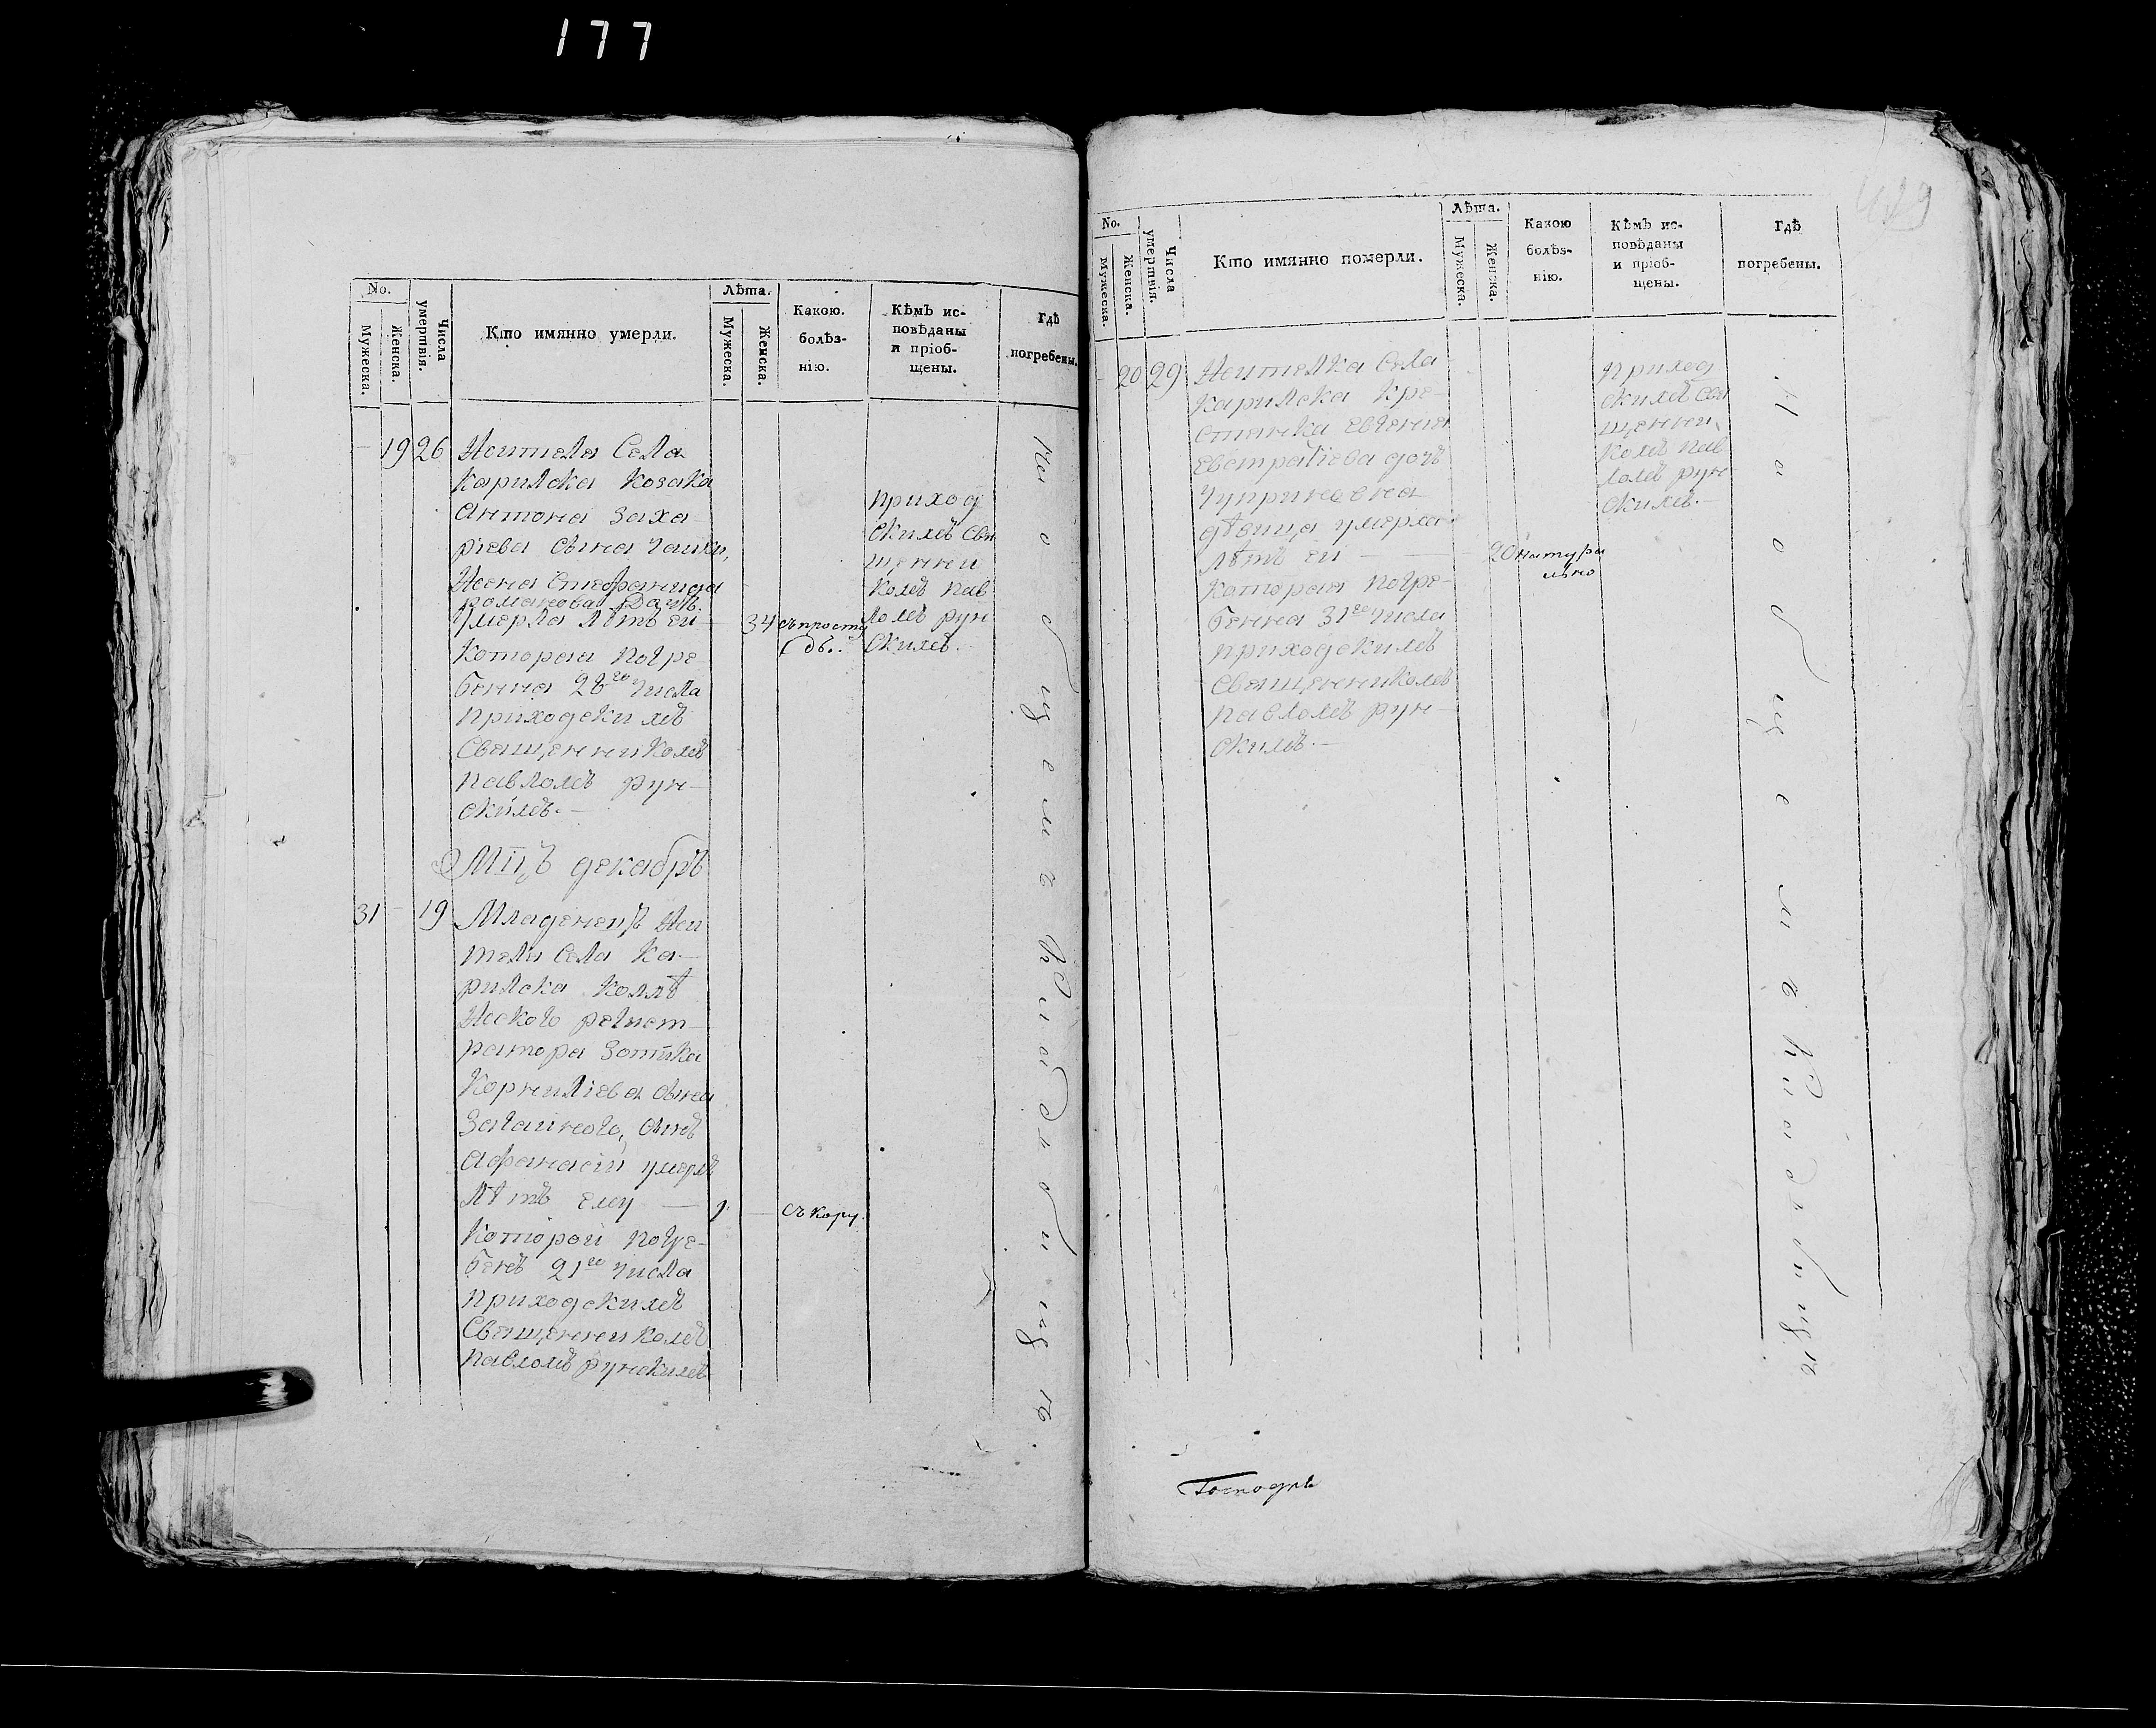 177
No.
Мужеска.
Женска.
Числа умертвія.
Кто имянно умерли.
Лѣта.
Мужеска.
Женска.
Какою. болѣз- нію.
Кѣмъ ис- повѣданы и пріоб- щены.
Гдѣ погребены.
19 26 Жителя Села
Карилска козака
Антона Заха
ріева сына
Жена Стефанида
романова Дочь.
Умерла лѣтъ ей 34 съ просту
ды.
Которая погре
бенна 28го числа
приходскимъ
Священникомъ
павломъ рун-
скимъ.—
приход
скимъ свя
щенни
комъ пав
ломъ рун
скимъ.
Мцъ декабрь
31 - 19 Младенецъ жи
теля Села Ка-
рилска коллѣ
жского регист-
ратора Зотика
Корниліева сына
сынъ
афанасій умеръ
Лѣтъ ему — 1 — съ кору.
Которой погре-
бенъ 21го числа
приходскимъ
Священникомъ
павломъ рунскимъ
На общемъ кладбищѣ.
419
No.
Мужеска.
Женска.
Числа умертвія.
Кто имянно померли.
Лѣта.
Мужеска.
Женска.
Какою болѣз- нію.
Кѣмъ ис- повѣданы и пріоб- щены.
Гдѣ погребены.
- 20 29 Жителка Села
Карилска кре-
стянка Евгения
Евстратіева дочь
Чуприновна
дѣвица умерла
Лѣтъ ей — 20 натура
льно
Которая погре-
бенна 31го числа
приходскимъ
Священникомъ
павломъ рун-
скимъ.—
приход
скимъ свя
щенни
комъ пав
ломъ рун
скимъ.—
На общемъ кладбищѣ